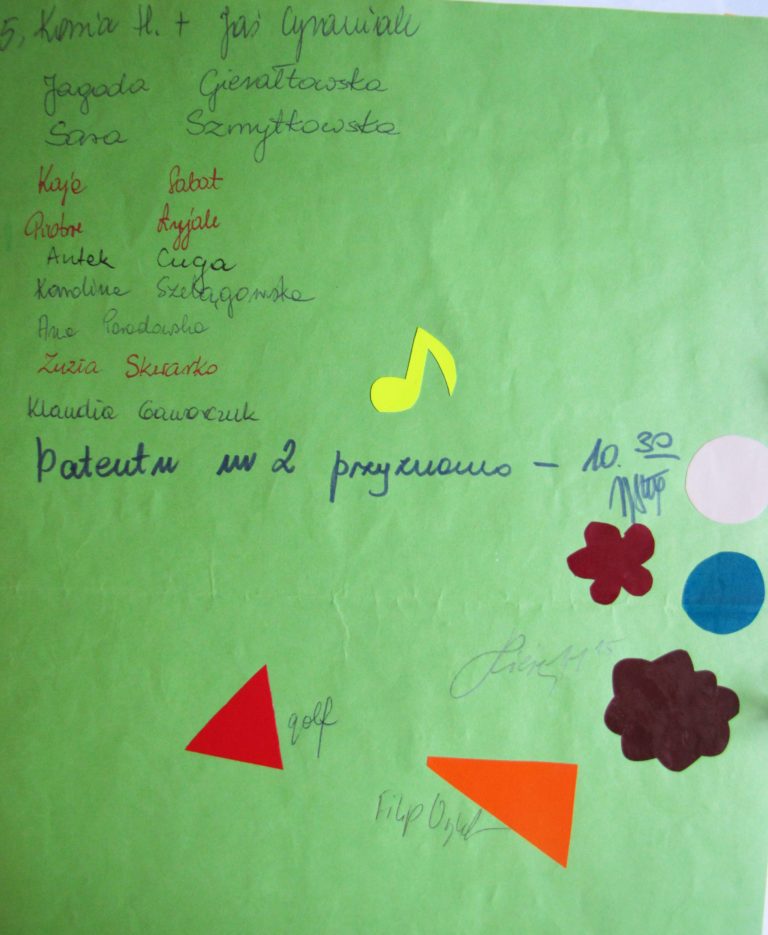 5, Kornia H. + Jaś Cyraniak
Jagoda Gierałtowska
Sara Szmytkowska
Kaja Sabat
Antek Cuga
Karolina Szelągowska
Ana Paradowska
Zuzia Skwarko
Klaudia Gaworczuk
Patentu nr 2 przyznano – 10.30
golf
Filip